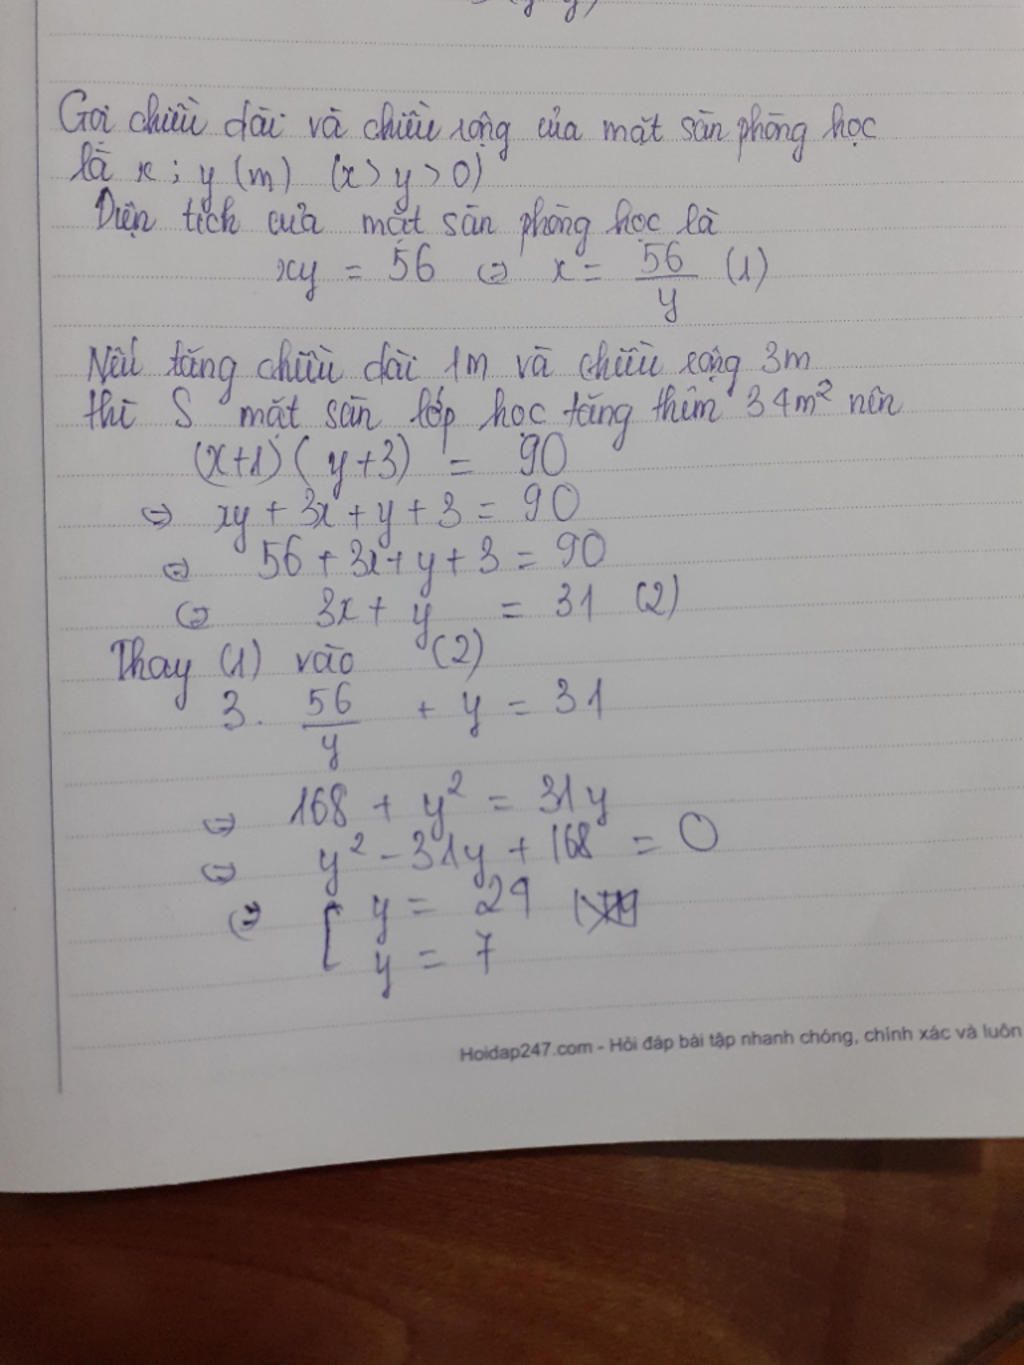 Gọi chiều dài và chiều rộng của mặt sàn phòng học
là x ; y (m) (x > y > 0)
Diện tích của mặt sàn phòng học là
xy = 56 ⇔ x = 56/y (1)
Nếu tăng chiều dài 1m và chiều rộng 3m
thì S mặt sàn lớp học tăng thêm 34m² nên
(x+1)(y+3) = 90
⇔ xy + 3x + y + 3 = 90
⇔ 56 + 3x + y + 3 = 90
⇔ 3x + y = 31 (2)
Thay (1) vào (2)
3. 56/y + y = 31
⇔ 168 + y² = 31y
⇔ y² - 31y + 168 = 0
⇔ [ y = 24
y = 7
Hoidap247.com - Hỏi đáp bài tập nhanh chóng, chính xác và luôn